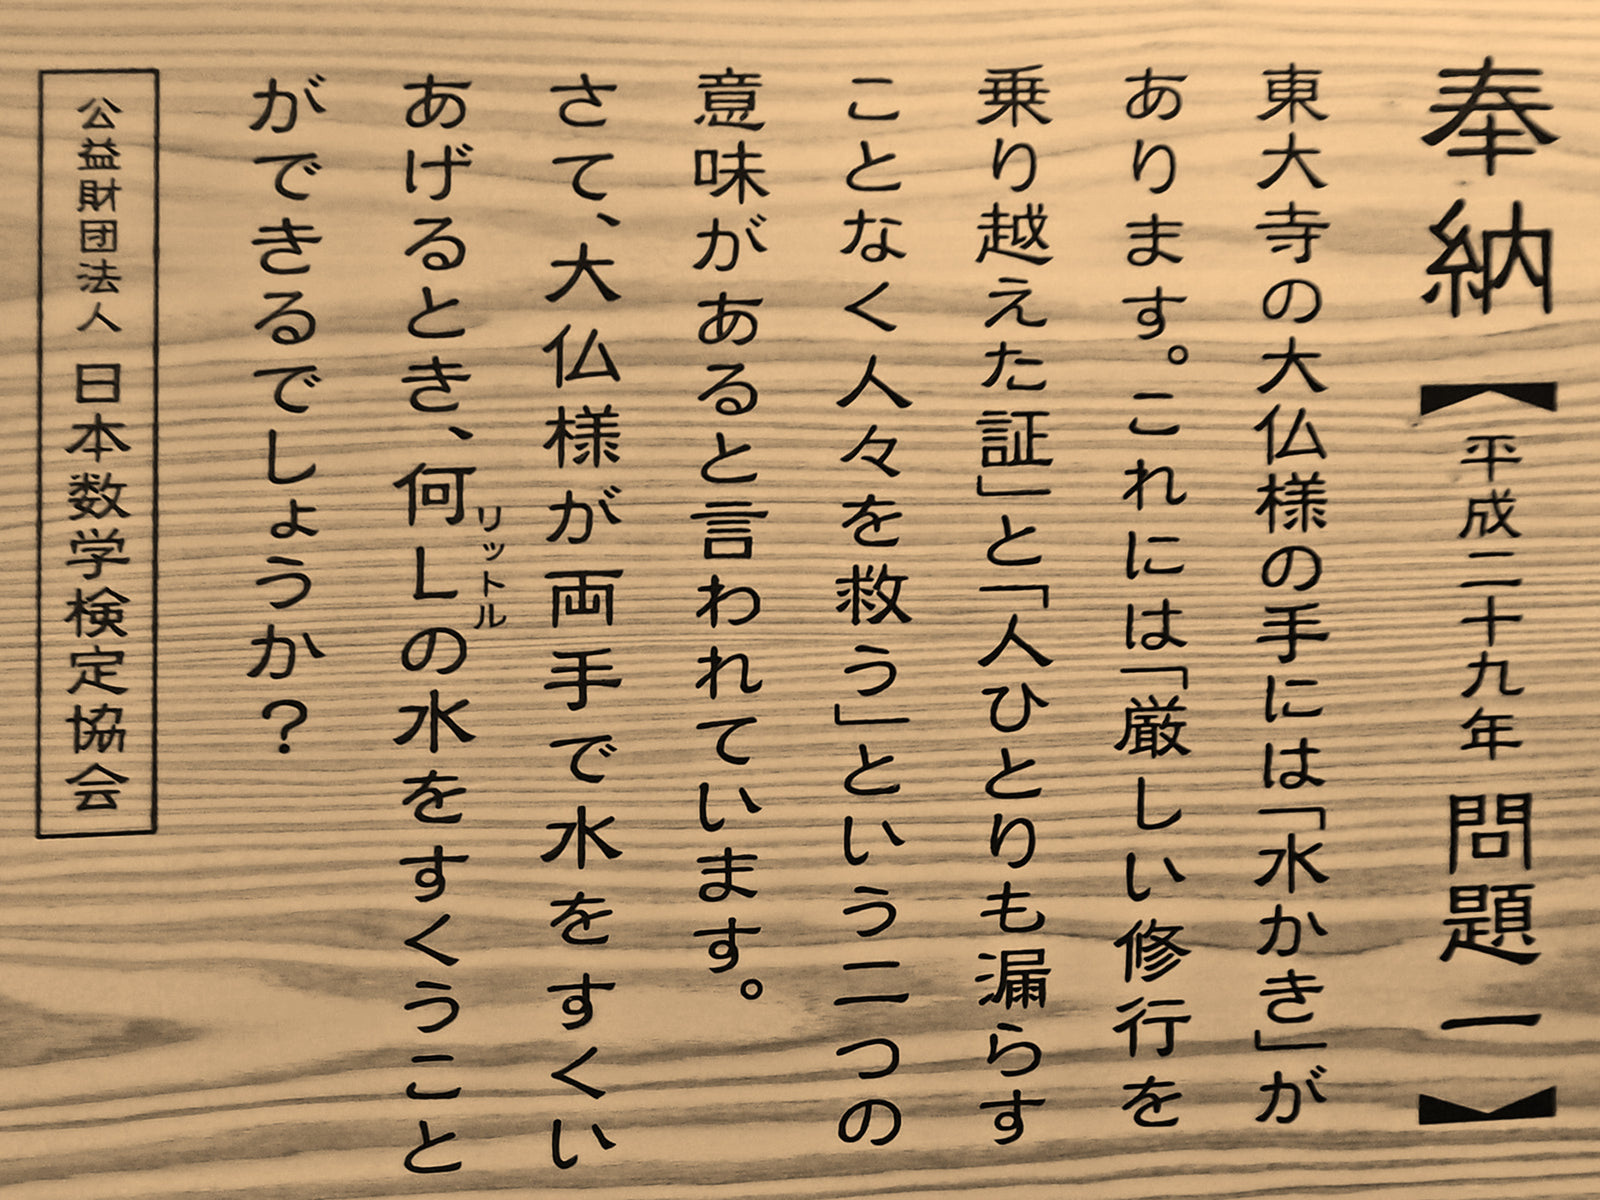 奉納【平成二十九年 問題一】
東大寺の大仏様の手には「水かき」が
あります。これには「厳しい修行を
乗り越えた証」と「人ひとりも漏らす
ことなく人々を救う」という二つの
意味があると言われています。
さて、大仏様が両手で水をすくい
あげるとき、何Lの水をすくうこと
リットル
ができるでしょうか？
公益財団法人 日本数学検定協会